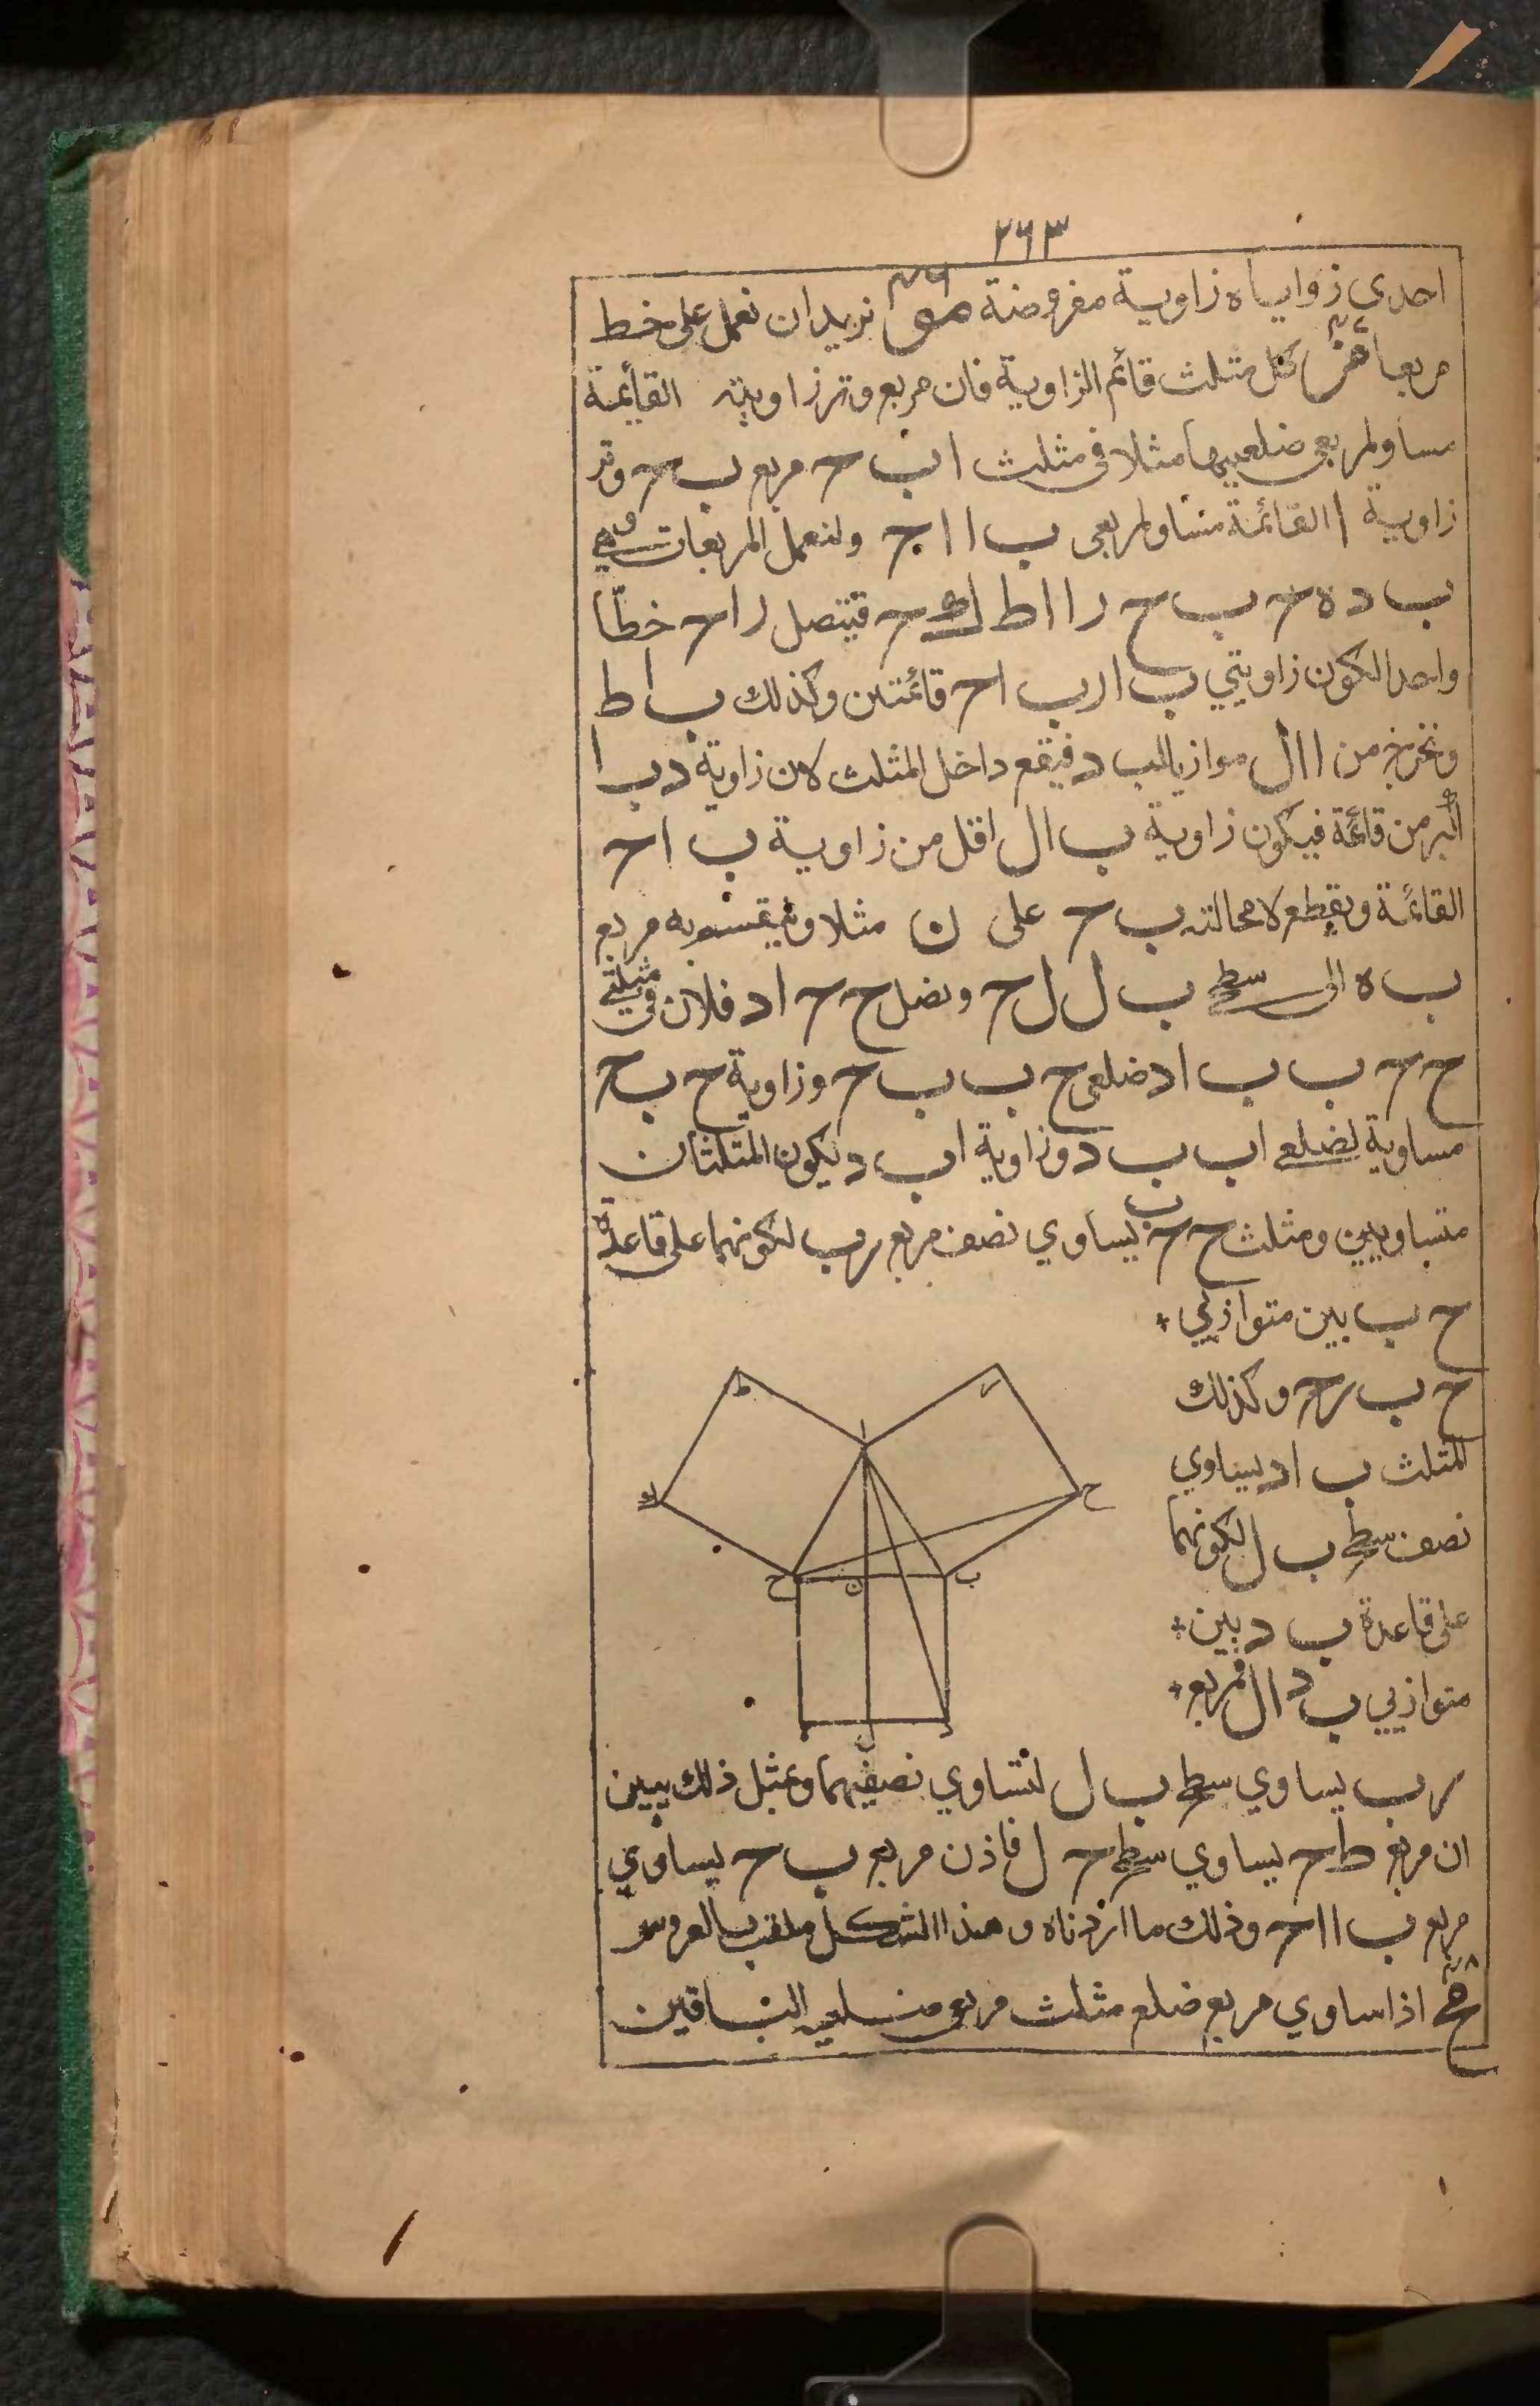 ٢٦٣
احدى زواياه زاوية مفروضة مو ٤٦ نريد ان نعمل على خط
مربعا مز كل مثلث قائم الزاوية فان مربع وتر زاويته القائمة
مساو لمربعي ضلعيها مثلا في مثلث ا ب ح مربع ب ح وتر
زاوية ا القائمة مساو لمربعي ب ا ا ج ولنعمل المربعات وهي
ب د ه ح ب ح ر ا ا ط ك ح فيتصل ر ا ح خطّا
واحدا لكون زاويتي ب ا ر ب ا ح قائمتين وكذلك ب ا ط
ونخرج من ا ا ل موازيا لب د فيقع داخل المثلث لان زاوية د ب ا
اكبر من قائمة فيكون زاوية ب ا ل اقل من زاوية ب ا ح
القائمة ويقطع لا محالته ب ح على ن مثلا وينقسم به مربع
ب ه الى سطح ب ل ل ح ونصل ح ح ا د فلان في مثلثي
ح ح ب ب ا د ضلعي ح ب ب ح وزاوية ح ب ح
مساوية لضلعي ا ب ب د وزاوية ا ب د يكون المثلثان
متساويين ومثلث ح ح ب يساوي نصف مربع ر ب لكونهما على قاعدة
ح ب بين متوازيي
ح ب ر ح وكذلك
المثلث ب ا د يساوي
نصف سطح ب ل لكونهما
على قاعدة ب د بين
متوازيي ب د ا ل فمربع
ر ب يساوي سطح ب ل لتساوي نصفيهما وبمثل ذلك يبين
ان مربع ط ح يساوي سطح ح ل فاذن مربع ب ح يساوي
مربع ب ا ا ح وذلك ما اردناه وهذا الشكل ملقب بالعروس
مح ٤٨ اذا ساوي مربع ضلع مثلث مربعي ضلعيه الباقيين
ط
ر
ا
ك
ح
ح
ن
ب
ه
ل
د